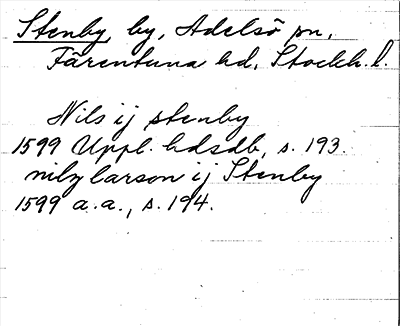 Stenby, by, Adelsö sn,
Färentuna hd, Stockh. l.
Nils ij stenby
1599 Uppl. hdsdb, s. 193.
nilz larson ij Stenby
1599 a.a., s. 194.